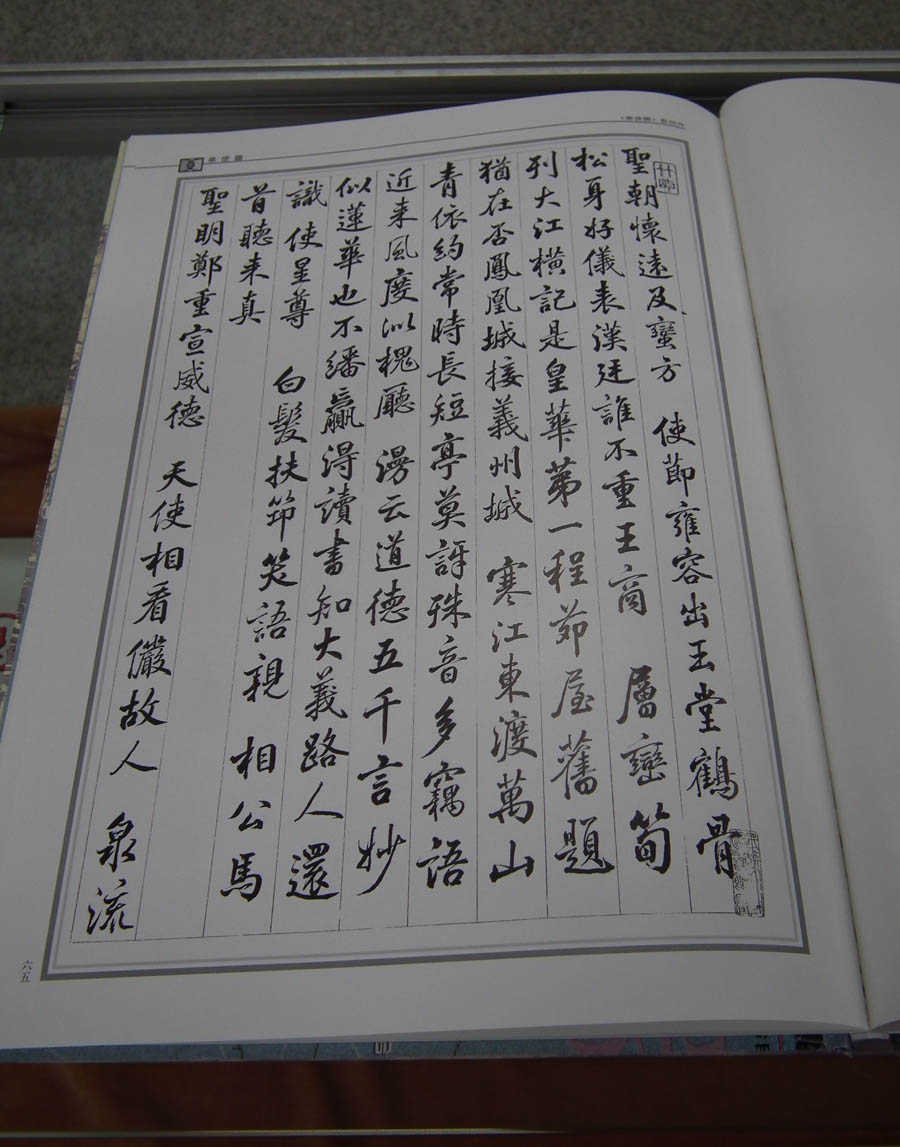 奉使圖
聖朝懷遠及蠻方　使節雍容出玉堂鶴骨
松身好儀表漢廷誰不重王商　層巒筍
列大江橫記是皇華第一程茆屋舊題
猶在否鳳凰城接義州城　寒江東渡萬山
青依約常時長短亭莫訝殊音多竊語
近来風度似槐廳　漫云道德五千言妙
似蓮華也不繙贏得讀書知大義路人還
識　使星尊　白髮扶笻笑語親　相公馬
首聽来真
聖明鄭重宣威德　天使相看儼故人　泉流
六五